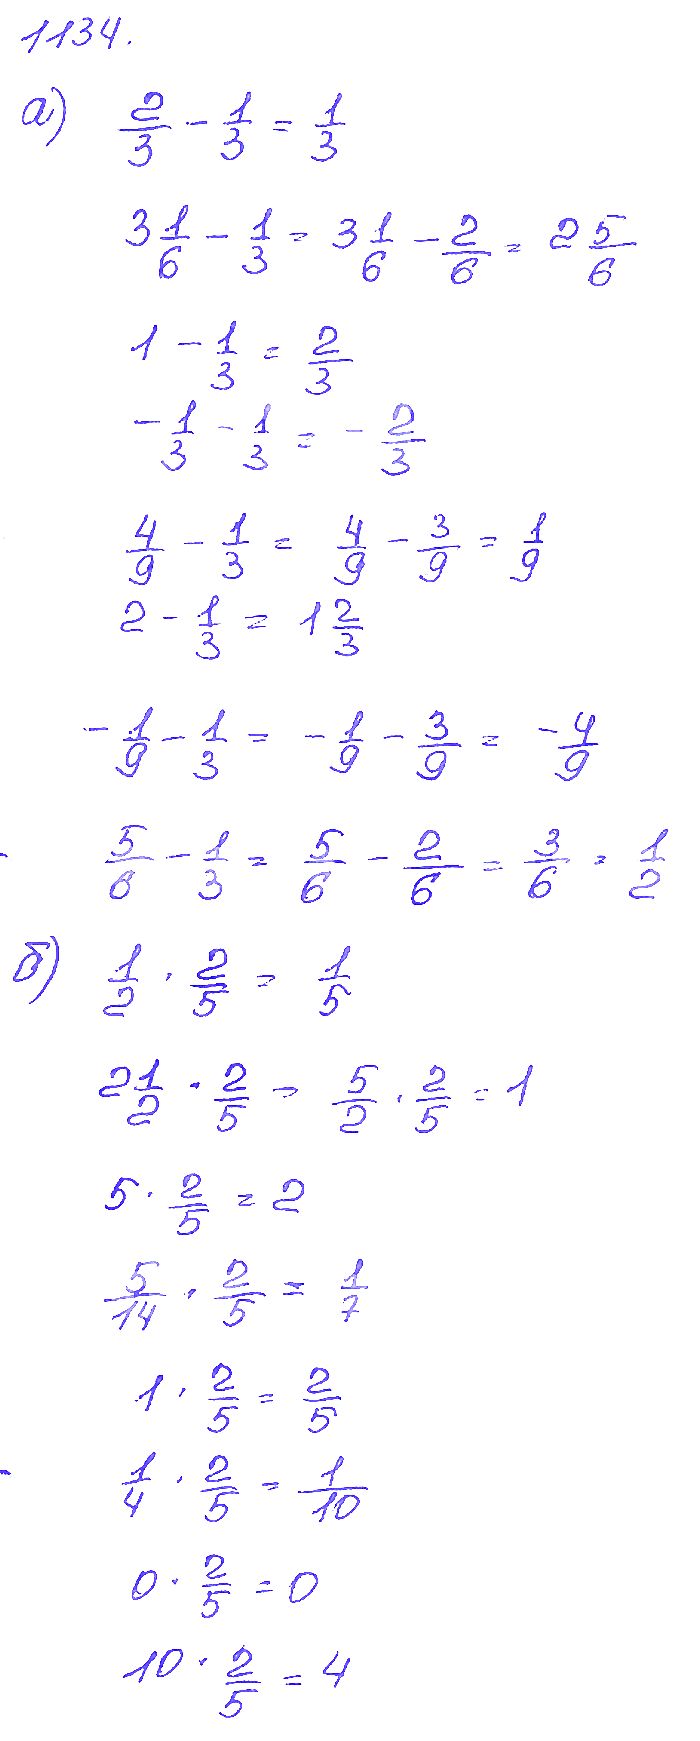 1134.
а) 2/3 - 1/3 = 1/3
3 1/6 - 1/3 = 3 1/6 - 2/6 = 2 5/6
1 - 1/3 = 2/3
- 1/3 - 1/3 = - 2/3
4/9 - 1/3 = 4/9 - 3/9 = 1/9
2 - 1/3 = 1 2/3
- 1/9 - 1/3 = - 1/9 - 3/9 = - 4/9
5/6 - 1/3 = 5/6 - 2/6 = 3/6 = 1/2
б) 1/2 · 2/5 = 1/5
2 1/2 · 2/5 = 5/2 · 2/5 = 1
5 · 2/5 = 2
5/14 · 2/5 = 1/7
1 · 2/5 = 2/5
1/4 · 2/5 = 1/10
0 · 2/5 = 0
10 · 2/5 = 4